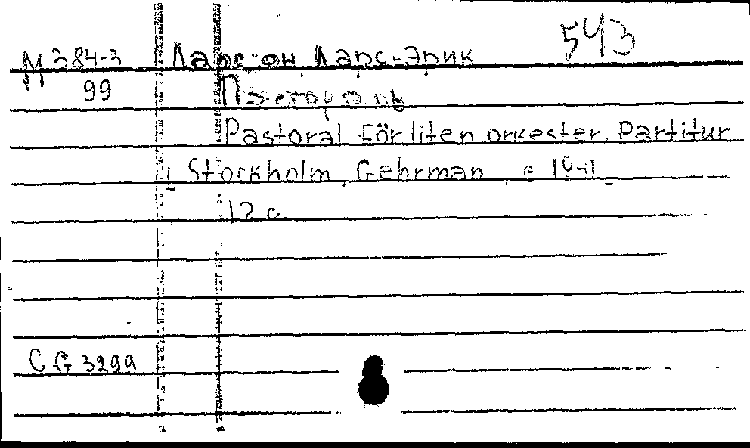 543
М 284-3 Ларссон, Ларс-Эрик
99 Пастораль
Pastoral för liten orkester. Partitur
Stockholm, Gehrman, c 1941.
12 c.
CG 3299